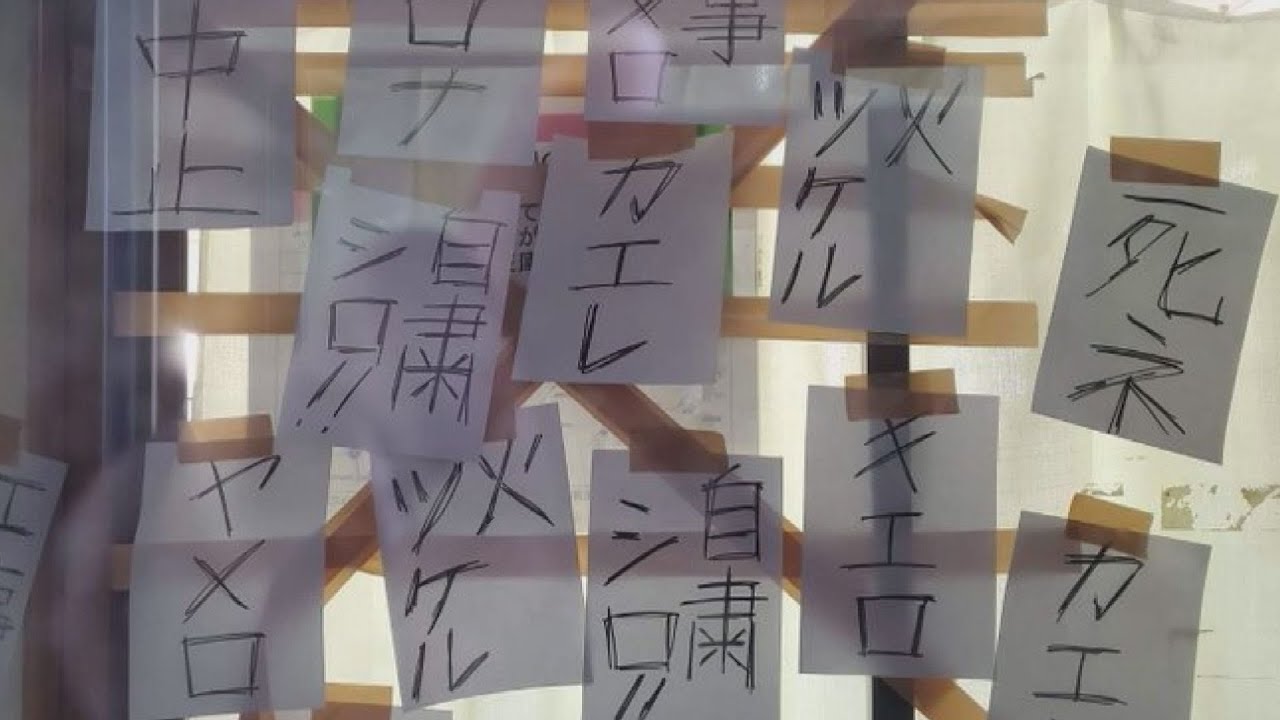 中止
ロナ
事
メロ
火
ツケル
死ネ
自粛
シロ!!
カエレ
ヤメロ
火
ツケル
自粛
シロ!!
キエロ
カエ